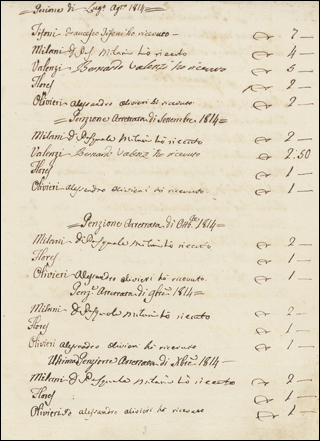 Penzione di Lug.º Ag.to 1814
Tifoni Francesco Tifoni ho ricevuto 7 —
Milani di Pasquale Milani ho riceuto 4 —
Valenzi Bernardo Valenzi ho riceuto 5 —
Flores 2 —
Olivieri alessandro olivieri ho ricevuto 2 —
Penzione Arretrata di Settembre 1814
Milani di Pasquale Milani ho riceuto 2 —
Valenzi Bernardo Valenzi ho riceuto 2:50
Flores 1 —
Olivieri alessandro olivieri ho ricevuto 1 —
Penzione Arretrata di Ott.bre 1814
Milani di Pasquale Milani ho riceuto 2 —
Flores 1 —
Olivieri Alessandro olivieri ho ricevuto 1 —
Penz.e Arretrata di 9bre 1814
Milani di Pasquale Milani ho riceuto 2 —
Flores 1 —
Olivieri alessandro olivieri ho ricevuto 1 —
Ultima Penzione Arretrata di Xbre 1814
Milani di Pasquale Milani ho riceuto 2 —
Flores 1 —
Olivieri alessandro olivieri ho ricevuto 1 —